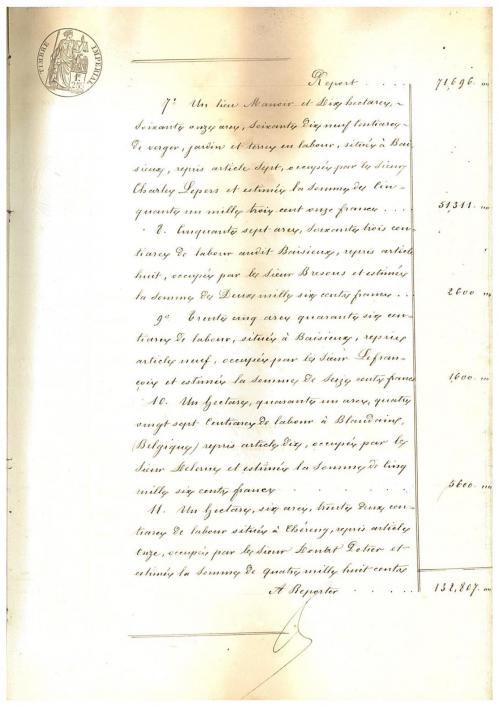 TIMBRE IMPERIAL
1 F.
Report . . . . . 71,696. "
7° Un lieu Manoir et Dix hectares,
soixante onze ares, soixante dix neuf centiares
de verger, jardin et terres en labour, situés à Bai-
sieux, repris article sept, occupés par le sieur
Charles Lepers et estimés la somme de Cin-
quante un mille trois cent onze francs . . . . 51,311. "
8. Cinquante sept ares, soixante trois cen-
tiares de labour audit Baisieux, repris article
huit, occupés par le sieur Bresous et estimés
la somme de Deux mille six cents francs . . . 2600 "
9° Trente cinq ares quarante six cen-
tiares de labour, situés à Baisieux, repris
article neuf, occupés par le sieur Lefran-
cois et estimés la somme de Seize cents francs 1,600. "
10. Un hectare, quarante un ares, quatre
vingt sept centiares de labour à Blandain,
(Belgique) repris article dix, occupés par le
sieur et estimés la somme de Cinq
mille six cents francs . . . . . . . 5600. "
11. Un hectare, six ares, trente deux cen-
tiares de labour situés à Chéreng, repris article
Onze, occupés par le sieur Donat Potier et
estimés la somme de quatre mille huit cents
A Reporter . . . . . 132,807. "